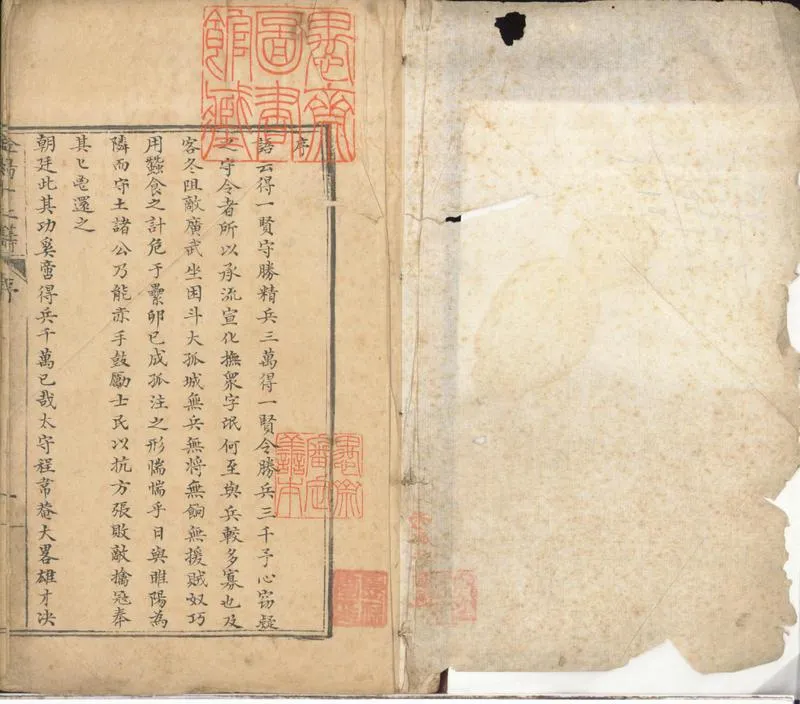 序
語云得一賢守勝精兵三萬得一賢令勝兵三千予心窃疑
之守令者所以承流宣化撫衆字氓何至與兵較多寡也及
客冬阻敵廣武坐困斗大孤城無兵無将無餉無援賊奴巧
用蠶食之計危于纍卵已成孤注之形惴惴乎日與睢陽為
隣而守土諸公乃能赤手鼓勵士民以抗方張敗敵擒冦奉
其匕鬯還之
朝廷此其功奚啻得兵千萬已哉太守程常菴大畧雄才决
愚齋圖書館藏
愚齋審定善本